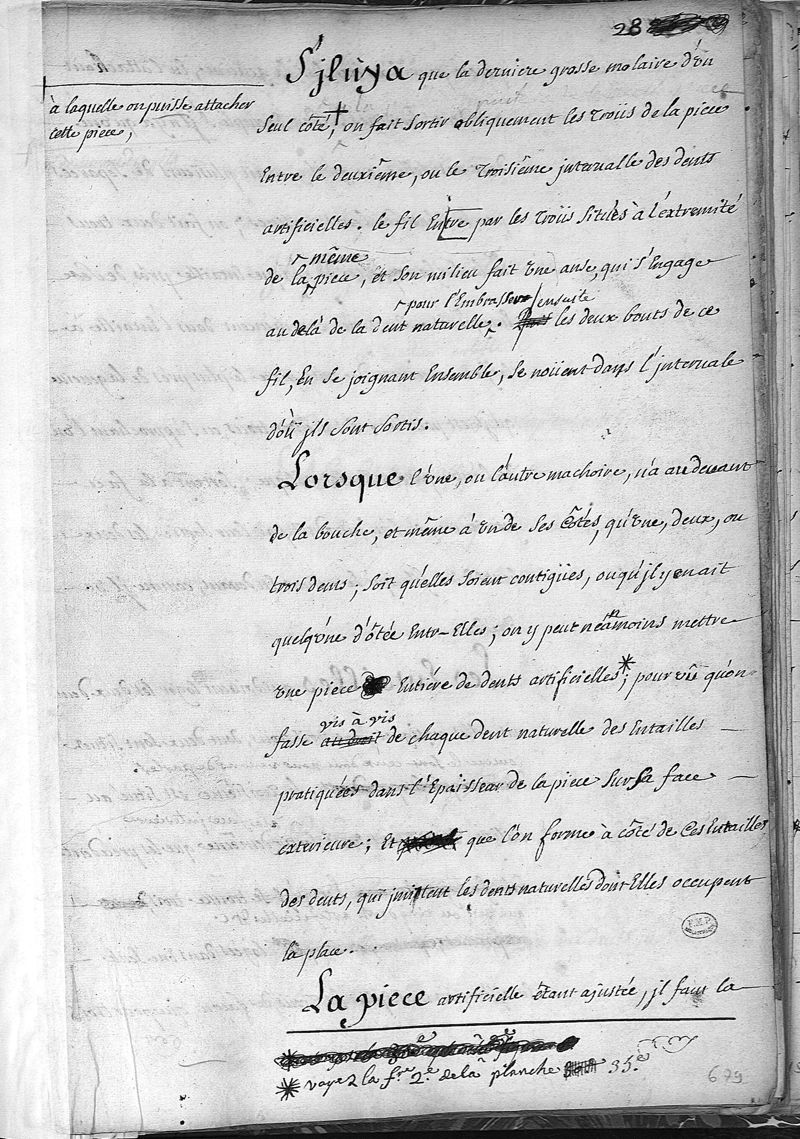 28
S'jl n'y a que la derniere grosse molaire d'un
à laquelle on puisse attacher
cette piece,
seul côté, + on fait sortir obliquement les troüs de la piece
Entre le deuxième, ou le troisième jntervalle des dents
artificielles. le fil Entre par les troüs situés à l'extremité
même
de la piece, et son milieu fait une anse, qui s'Engage
pour l'Embrasser ensuite
au delà de la dent naturelle. les deux bouts de ce
fil, En se joignant Ensemble, se noüent dans l'jntervale
d'où jls sont sortis.
Lorsque l'une, ou l'autre machoire, n'a au devant
de la bouche, et même à un de ses côtés, qu'une, deux, ou
trois dents; soit qu'elles soient contigües, ou qu'jl y en ait
quelqu'une d'ôtée Entr-Elles; on y peut néanmoins mettre
une piece Entiére de dents artificielles*; pour vû qu'on
vis à vis
fasse au droit de chaque dent naturelle des Entailles
pratiquées dans l'Epaisseur de la piece sur sa face
exterieure; Et que l'on forme à côté de Ces Entailles
des dents, qui jmitent les dents naturelles dont Elles occupent
la place.
La piece artificielle étant ajustée, jl faut la
* voyez la f.re 2.e de la planche 35.e
679